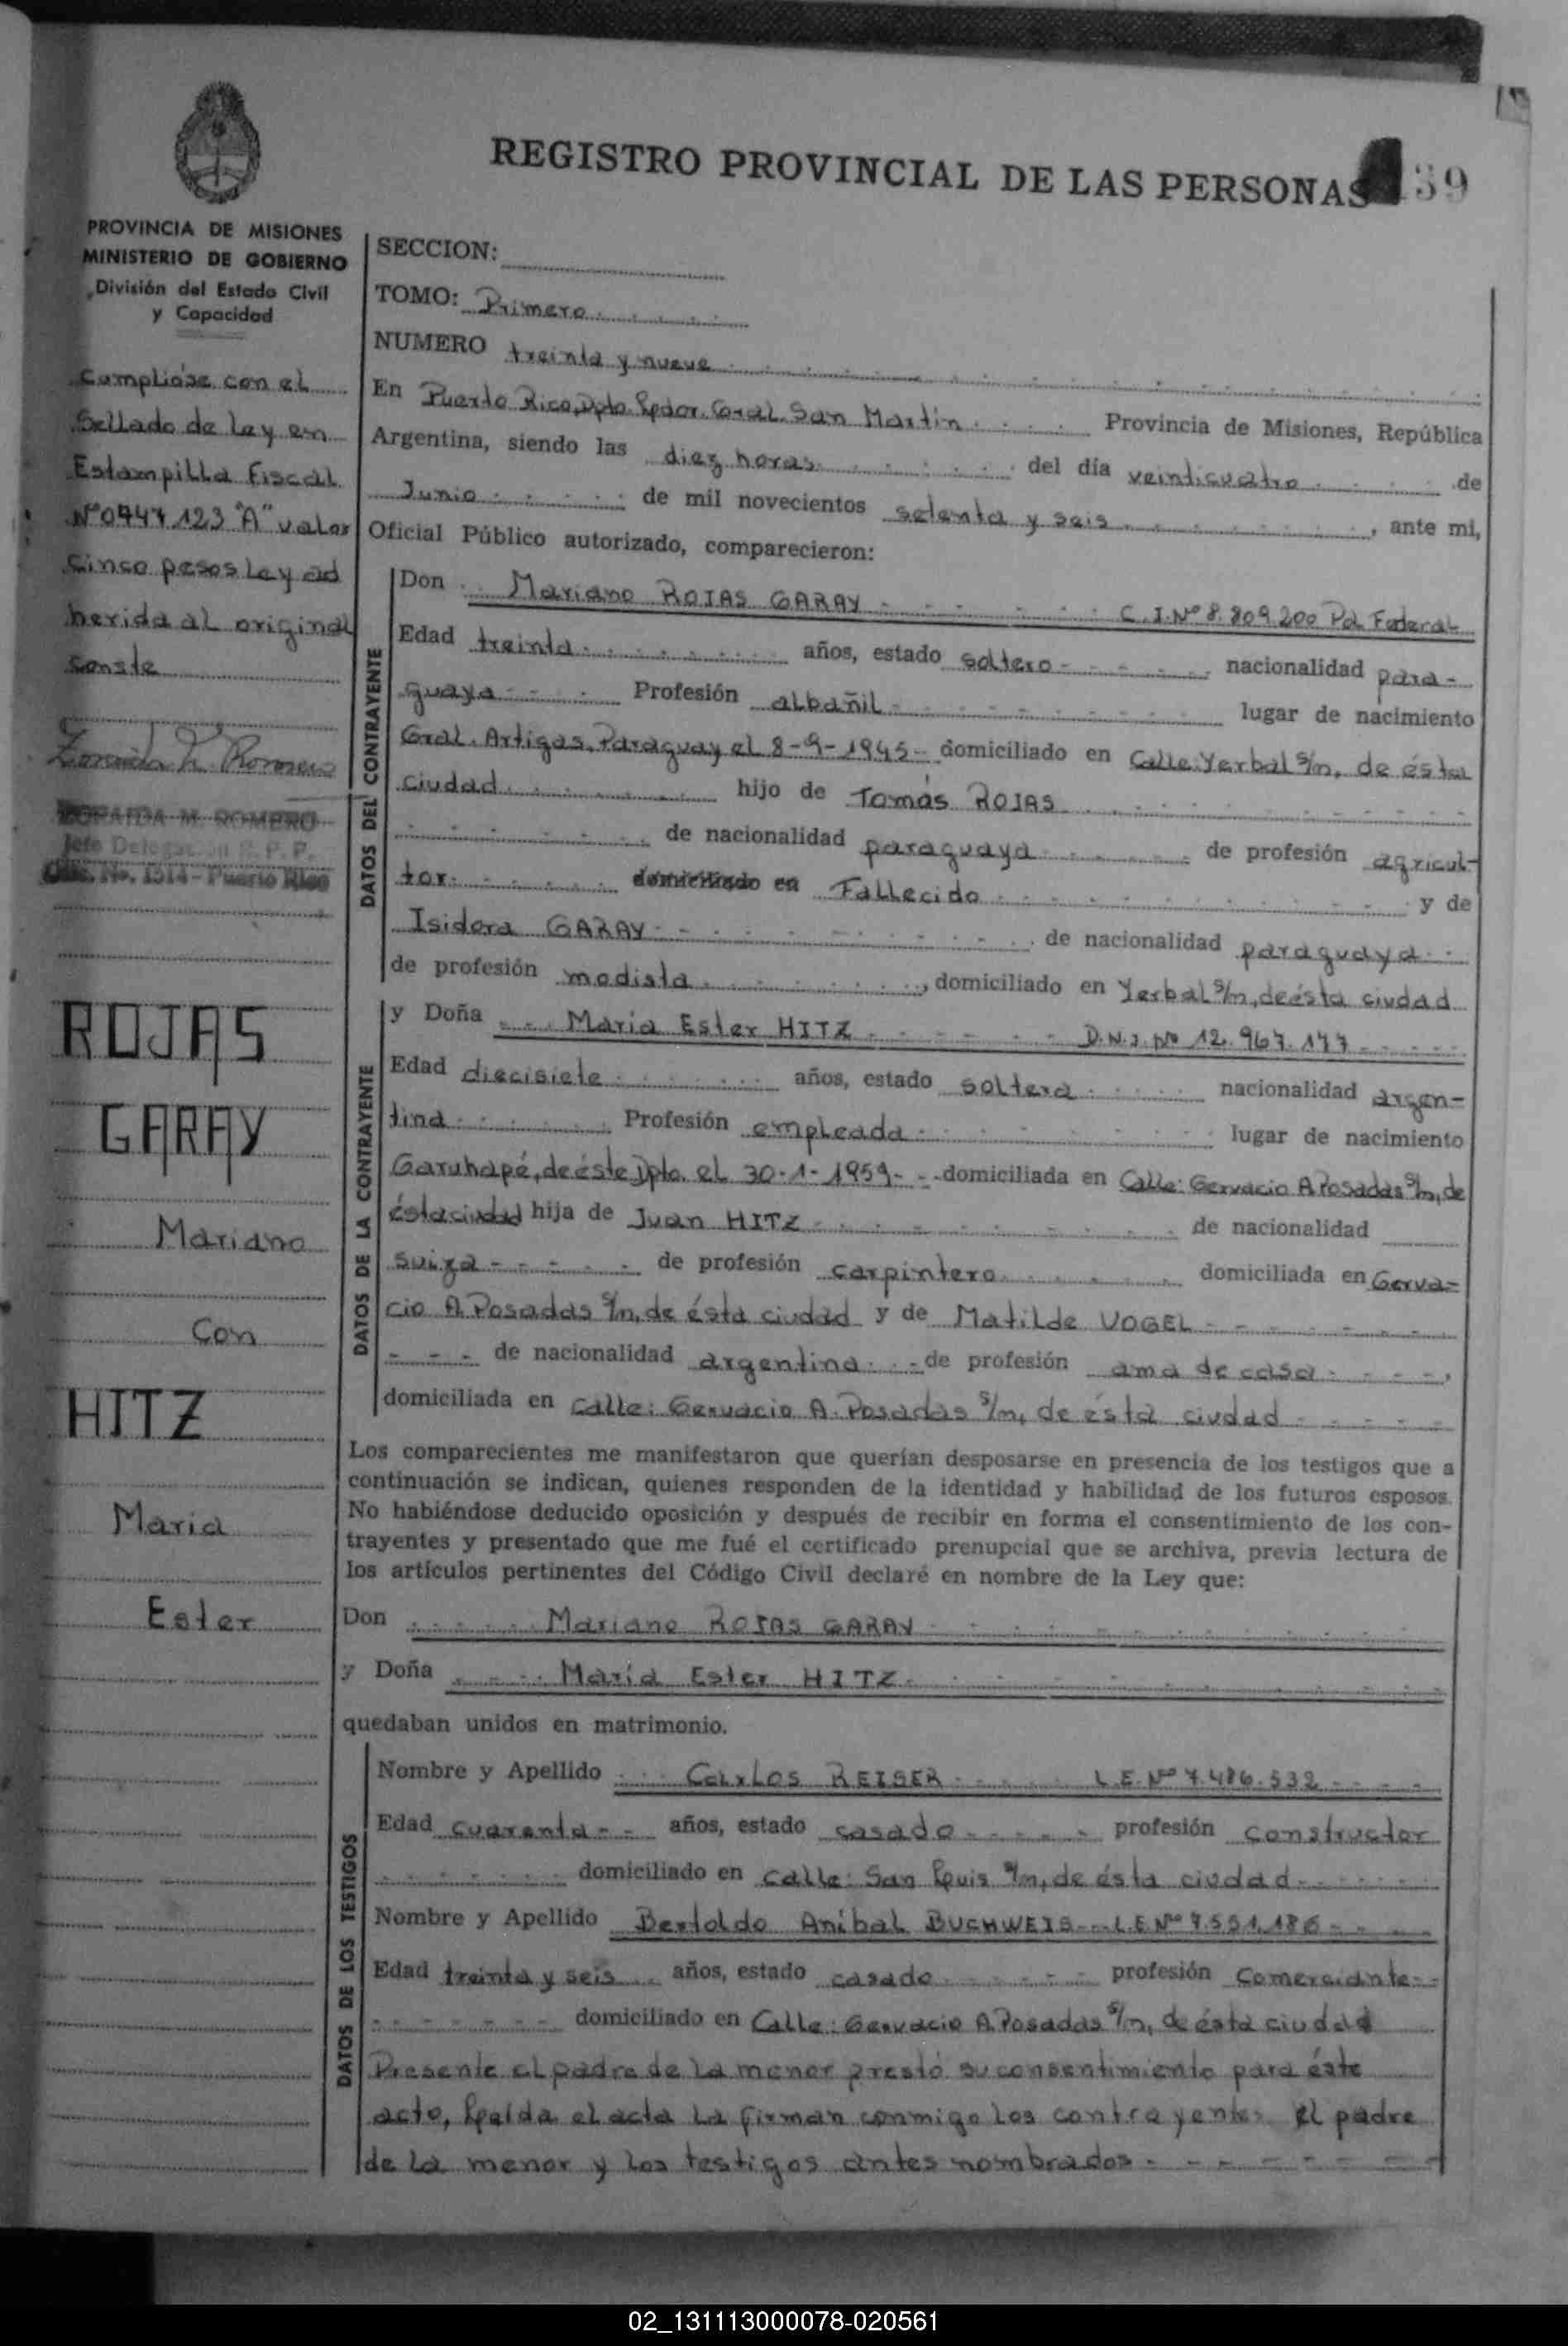 REGISTRO PROVINCIAL DE LAS PERSONAS
39
PROVINCIA DE MISIONES
MINISTERIO DE GOBIERNO
División del Estado Civil
y Capacidad
Cumplióse con el
Sellado de Ley en
Estampilla Fiscal
Nº0947123 "A" valor
Cinco pesos Ley ad
herida al original
conste
ZORAIDA M. ROMERO
Jefe Delegación R. P. P.
Ofic. No. 1514 - Puerto Rico
ROJAS
GARAY
Mariano
Con
HITZ
Maria
Ester
SECCION:
TOMO: Primero
NUMERO treinta y nueve
En Puerto Rico, Dpto. Lpdor. Gral. San Martín Provincia de Misiones, República
Argentina, siendo las diez horas del día veinticuatro de
Junio de mil novecientos setenta y seis, ante mi,
Oficial Público autorizado, comparecieron:
DATOS DEL CONTRAYENTE
Don Mariano ROJAS GARAY C.I.Nº 8.809.200 Pol. Federal
Edad treinta años, estado soltero nacionalidad para-
guaya Profesión albañil lugar de nacimiento
Gral. Artigas, Paraguay el 8-9-1945 domiciliado en Calle: Yerbal s/n, de ésta
ciudad hijo de Tomás ROJAS
de nacionalidad paraguaya de profesión agricul-
tor domiciliado en Fallecido y de
Isidora GARAY de nacionalidad paraguaya
de profesión modista, domiciliado en Yerbal s/n, de ésta ciudad
DATOS DE LA CONTRAYENTE
y Doña Maria Ester HITZ D.N.I. Nº 12.967.177
Edad diecisiete años, estado soltera nacionalidad argen-
tina Profesión empleada lugar de nacimiento
Garuhapé, de éste Dpto. el 30-1-1959 domiciliada en Calle: Gervacio A. Posadas s/n, de
ésta ciudad hija de Juan HITZ de nacionalidad
suiza de profesión carpintero domiciliada en Gerva-
cio A. Posadas s/n, de ésta ciudad y de Matilde VOGEL
de nacionalidad argentina de profesión ama de casa,
domiciliada en calle: Gervacio A. Posadas s/n, de ésta ciudad
Los comparecientes me manifestaron que querían desposarse en presencia de los testigos que a
continuación se indican, quienes responden de la identidad y habilidad de los futuros esposos.
No habiéndose deducido oposición y después de recibir en forma el consentimiento de los con-
trayentes y presentado que me fué el certificado prenupcial que se archiva, previa lectura de
los artículos pertinentes del Código Civil declaré en nombre de la Ley que:
Don Mariano ROJAS GARAY
y Doña María Ester HITZ
quedaban unidos en matrimonio.
DATOS DE LOS TESTIGOS
Nombre y Apellido Carlos REISER L.E. Nº 7.486.532
Edad cuarenta años, estado casado profesión constructor
domiciliado en calle: San Luis s/n, de ésta ciudad
Nombre y Apellido Bertoldo Anibal BUCHWEIS L.E. Nº 7.551.186
Edad treinta y seis años, estado casado profesión Comerciante
domiciliado en Calle: Gervacio A. Posadas s/n, de ésta ciudad
Presente el padre de la menor prestó su consentimiento para éste
acto, Leída el acta la firman conmigo los contrayentes el padre
de la menor y los testigos antes nombrados.
02_131113000078-020561